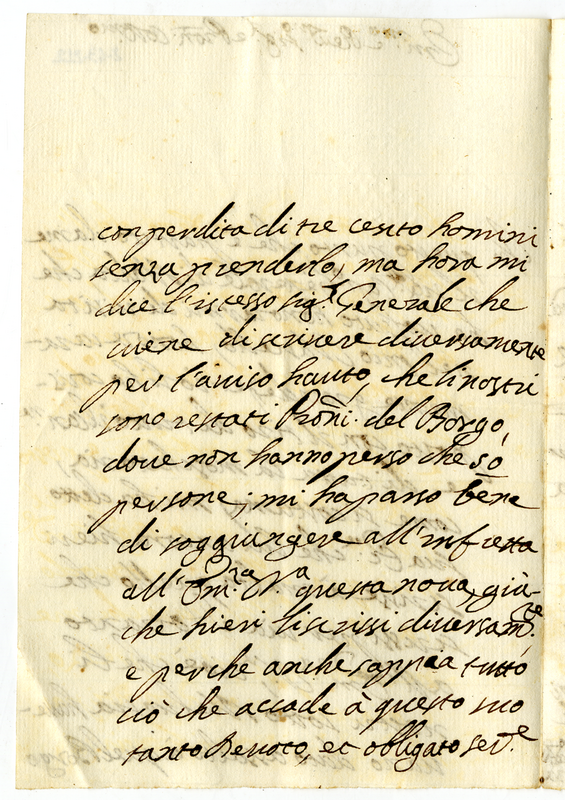 con perdita di tre cento homini
senza prenderlo, ma hora mi
dice l'istesso sig.r Generale che
viene di scrivere diversamente
per l'aviso hauto, che li nostri
sono restati Proñi. del Borgo,
dove non hanno perso che 50
persone; mi ha parso bene
di soggiungere all'infretta
all'Em.za V.a questa nova, già-
che hieri li scrissi diversam.te
e perche anche sappia tutto
ciò che accade à questo suo
tanto Devoto, et obligato ser.e